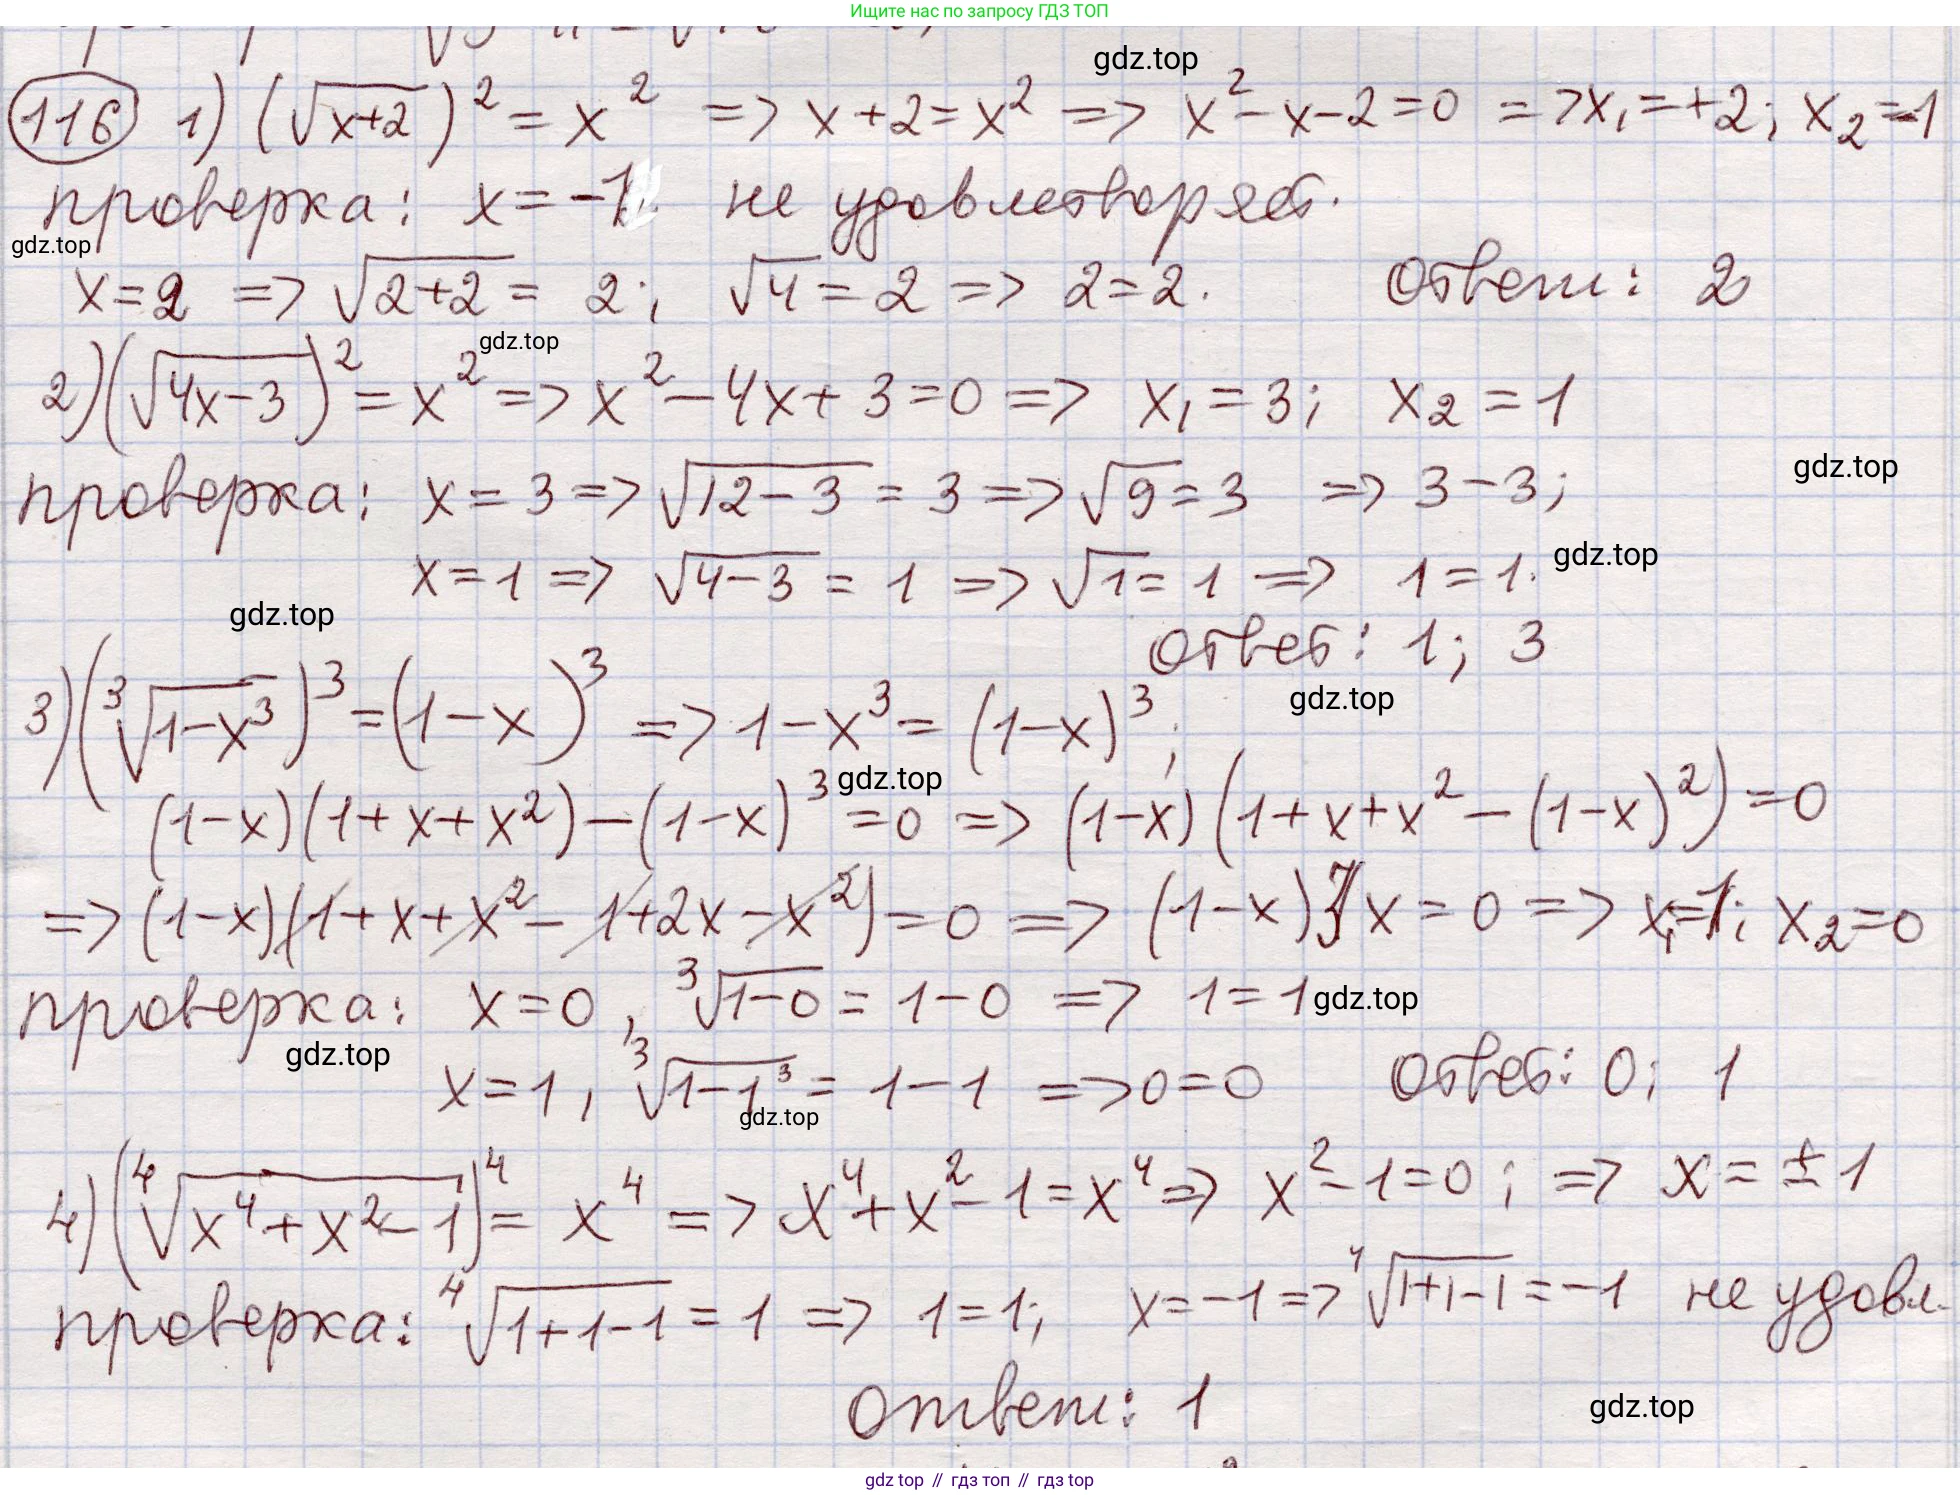 Ищите нас по запросу ГДЗ ТОП
gdz.top
116 1) (√(x+2))² = x² => x+2=x² => x²-x-2=0 => x₁=+2; x₂=-1
проверка: x=-1 не удовлетворяет.
gdz.top
x=2 => √(2+2) = 2; √4=2 => 2=2. Ответ: 2
gdz.top
2) (√(4x-3))² = x² => x²-4x+3=0 => x₁=3; x₂=1
gdz.top
проверка: x=3 => √(12-3) = 3 => √9=3 => 3-3;
gdz.top
x=1 => √(4-3) = 1 => √1=1 => 1=1.
gdz.top
ответ: 1; 3
gdz.top
3) (∛(1-x³))³ = (1-x)³ => 1-x³ = (1-x)³;
gdz.top
(1-x)(1+x+x²)-(1-x)³=0 => (1-x)(1+x+x²-(1-x)²)=0
=> (1-x)(1+x+x²-1+2x-x²)=0 => (1-x)3x=0 => x₁=1; x₂=0
проверка: x=0, ∛(1-0) = 1-0 => 1=1
gdz.top
gdz.top
x=1, ∛(1-1³) = 1-1 => 0=0 ответ: 0; 1
gdz.top
4) (∜(x⁴+x²-1))⁴ = x⁴ => x⁴+x²-1=x⁴ => x²-1=0; => x=±1
проверка: ∜(1+1-1) = 1 => 1=1; x=-1 => ∜(1+1-1) = -1 не удовл.
ответ: 1
gdz.top
gdz top // гдз топ // гдз top